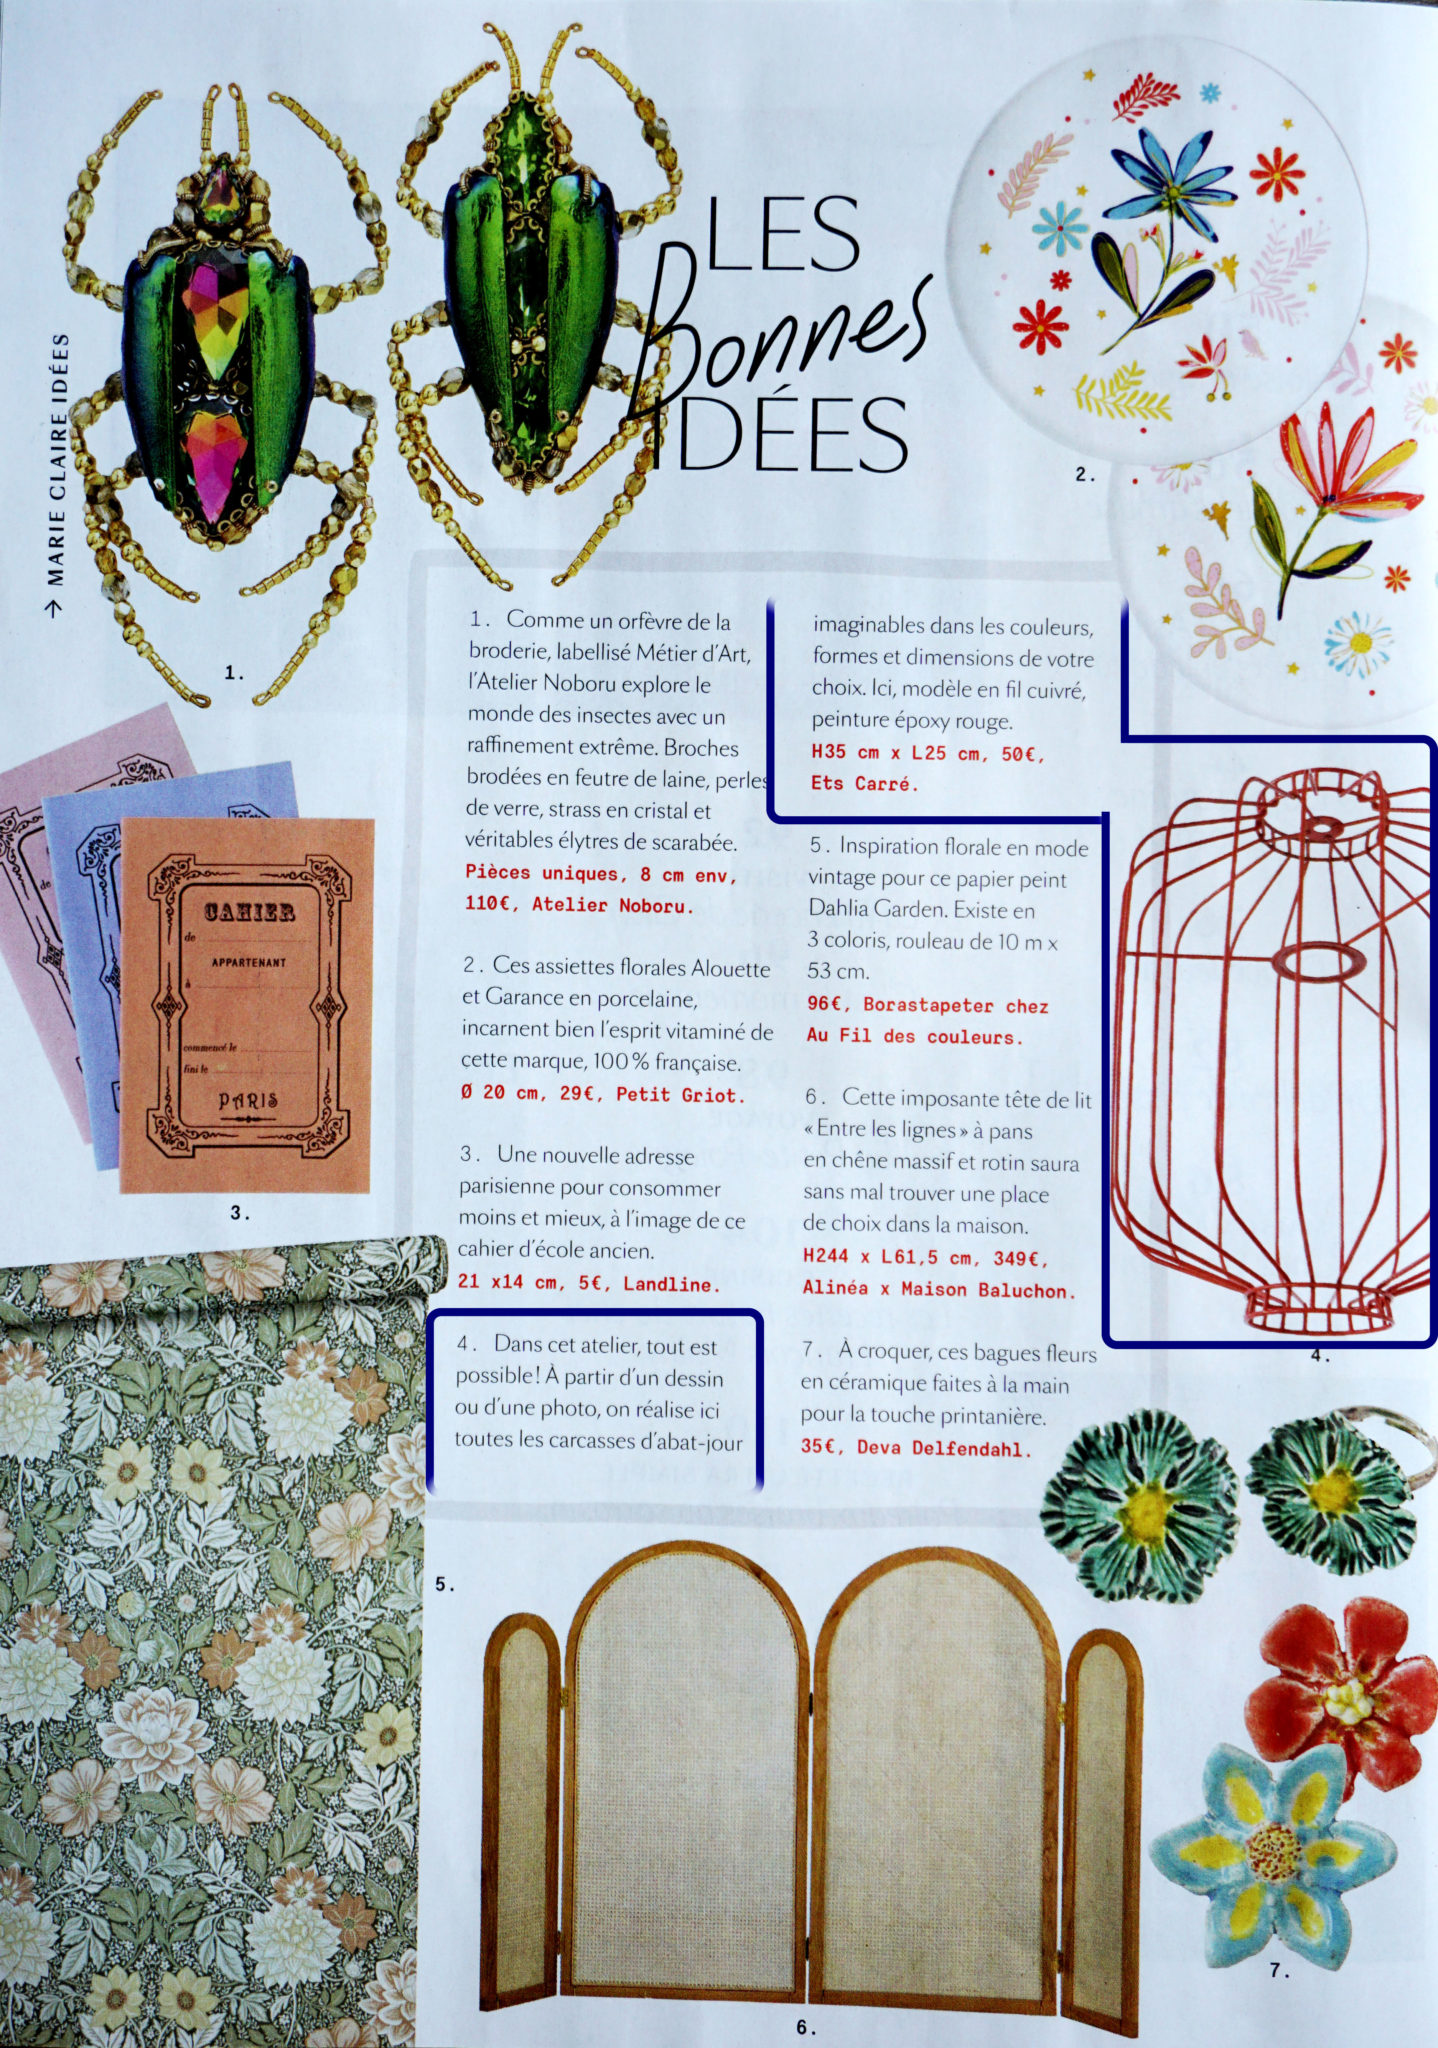 LES
Bonnes
IDÉES
→ MARIE CLAIRE IDÉES
1.
2.
CAHIER
de
APPARTENANT
à
commencé le
fini le
PARIS
de
3.
1. Comme un orfèvre de la
broderie, labellisé Métier d'Art,
l'Atelier Noboru explore le
monde des insectes avec un
raffinement extrême. Broches
brodées en feutre de laine, perles
de verre, strass en cristal et
véritables élytres de scarabée.
Pièces uniques, 8 cm env,
110€, Atelier Noboru.
2. Ces assiettes florales Alouette
et Garance en porcelaine,
incarnent bien l'esprit vitaminé de
cette marque, 100 % française.
Ø 20 cm, 29€, Petit Griot.
3. Une nouvelle adresse
parisienne pour consommer
moins et mieux, à l'image de ce
cahier d'école ancien.
21 x14 cm, 5€, Landline.
4. Dans cet atelier, tout est
possible! À partir d'un dessin
ou d'une photo, on réalise ici
toutes les carcasses d'abat-jour
imaginables dans les couleurs,
formes et dimensions de votre
choix. Ici, modèle en fil cuivré,
peinture époxy rouge.
H35 cm x L25 cm, 50€,
Ets Carré.
5. Inspiration florale en mode
vintage pour ce papier peint
Dahlia Garden. Existe en
3 coloris, rouleau de 10 m x
53 cm.
96€, Borastapeter chez
Au Fil des couleurs.
6. Cette imposante tête de lit
« Entre les lignes » à pans
en chêne massif et rotin saura
sans mal trouver une place
de choix dans la maison.
H244 x L61,5 cm, 349€,
Alinéa x Maison Baluchon.
7. À croquer, ces bagues fleurs
en céramique faites à la main
pour la touche printanière.
35€, Deva Delfendahl.
4.
5.
6.
7.